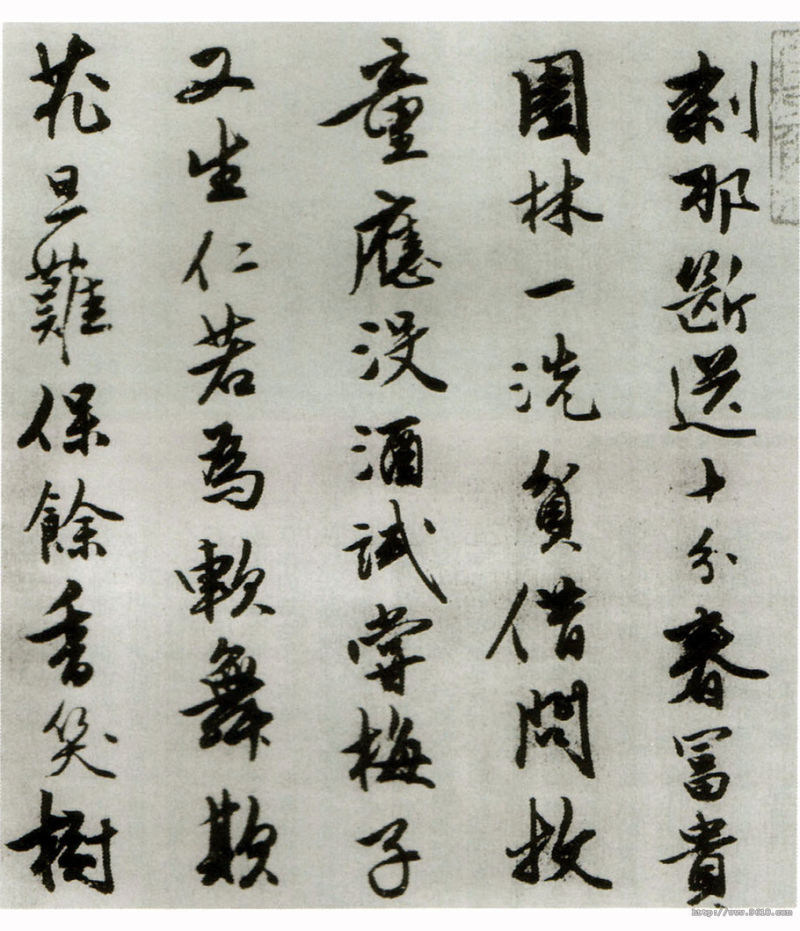 刹那斷送十分春富貴
園林一洗貧借問牧
童應沒酒試嘗梅子
又生仁若為軟舞欺
花旦難保餘香笑樹
http://www.9610.com